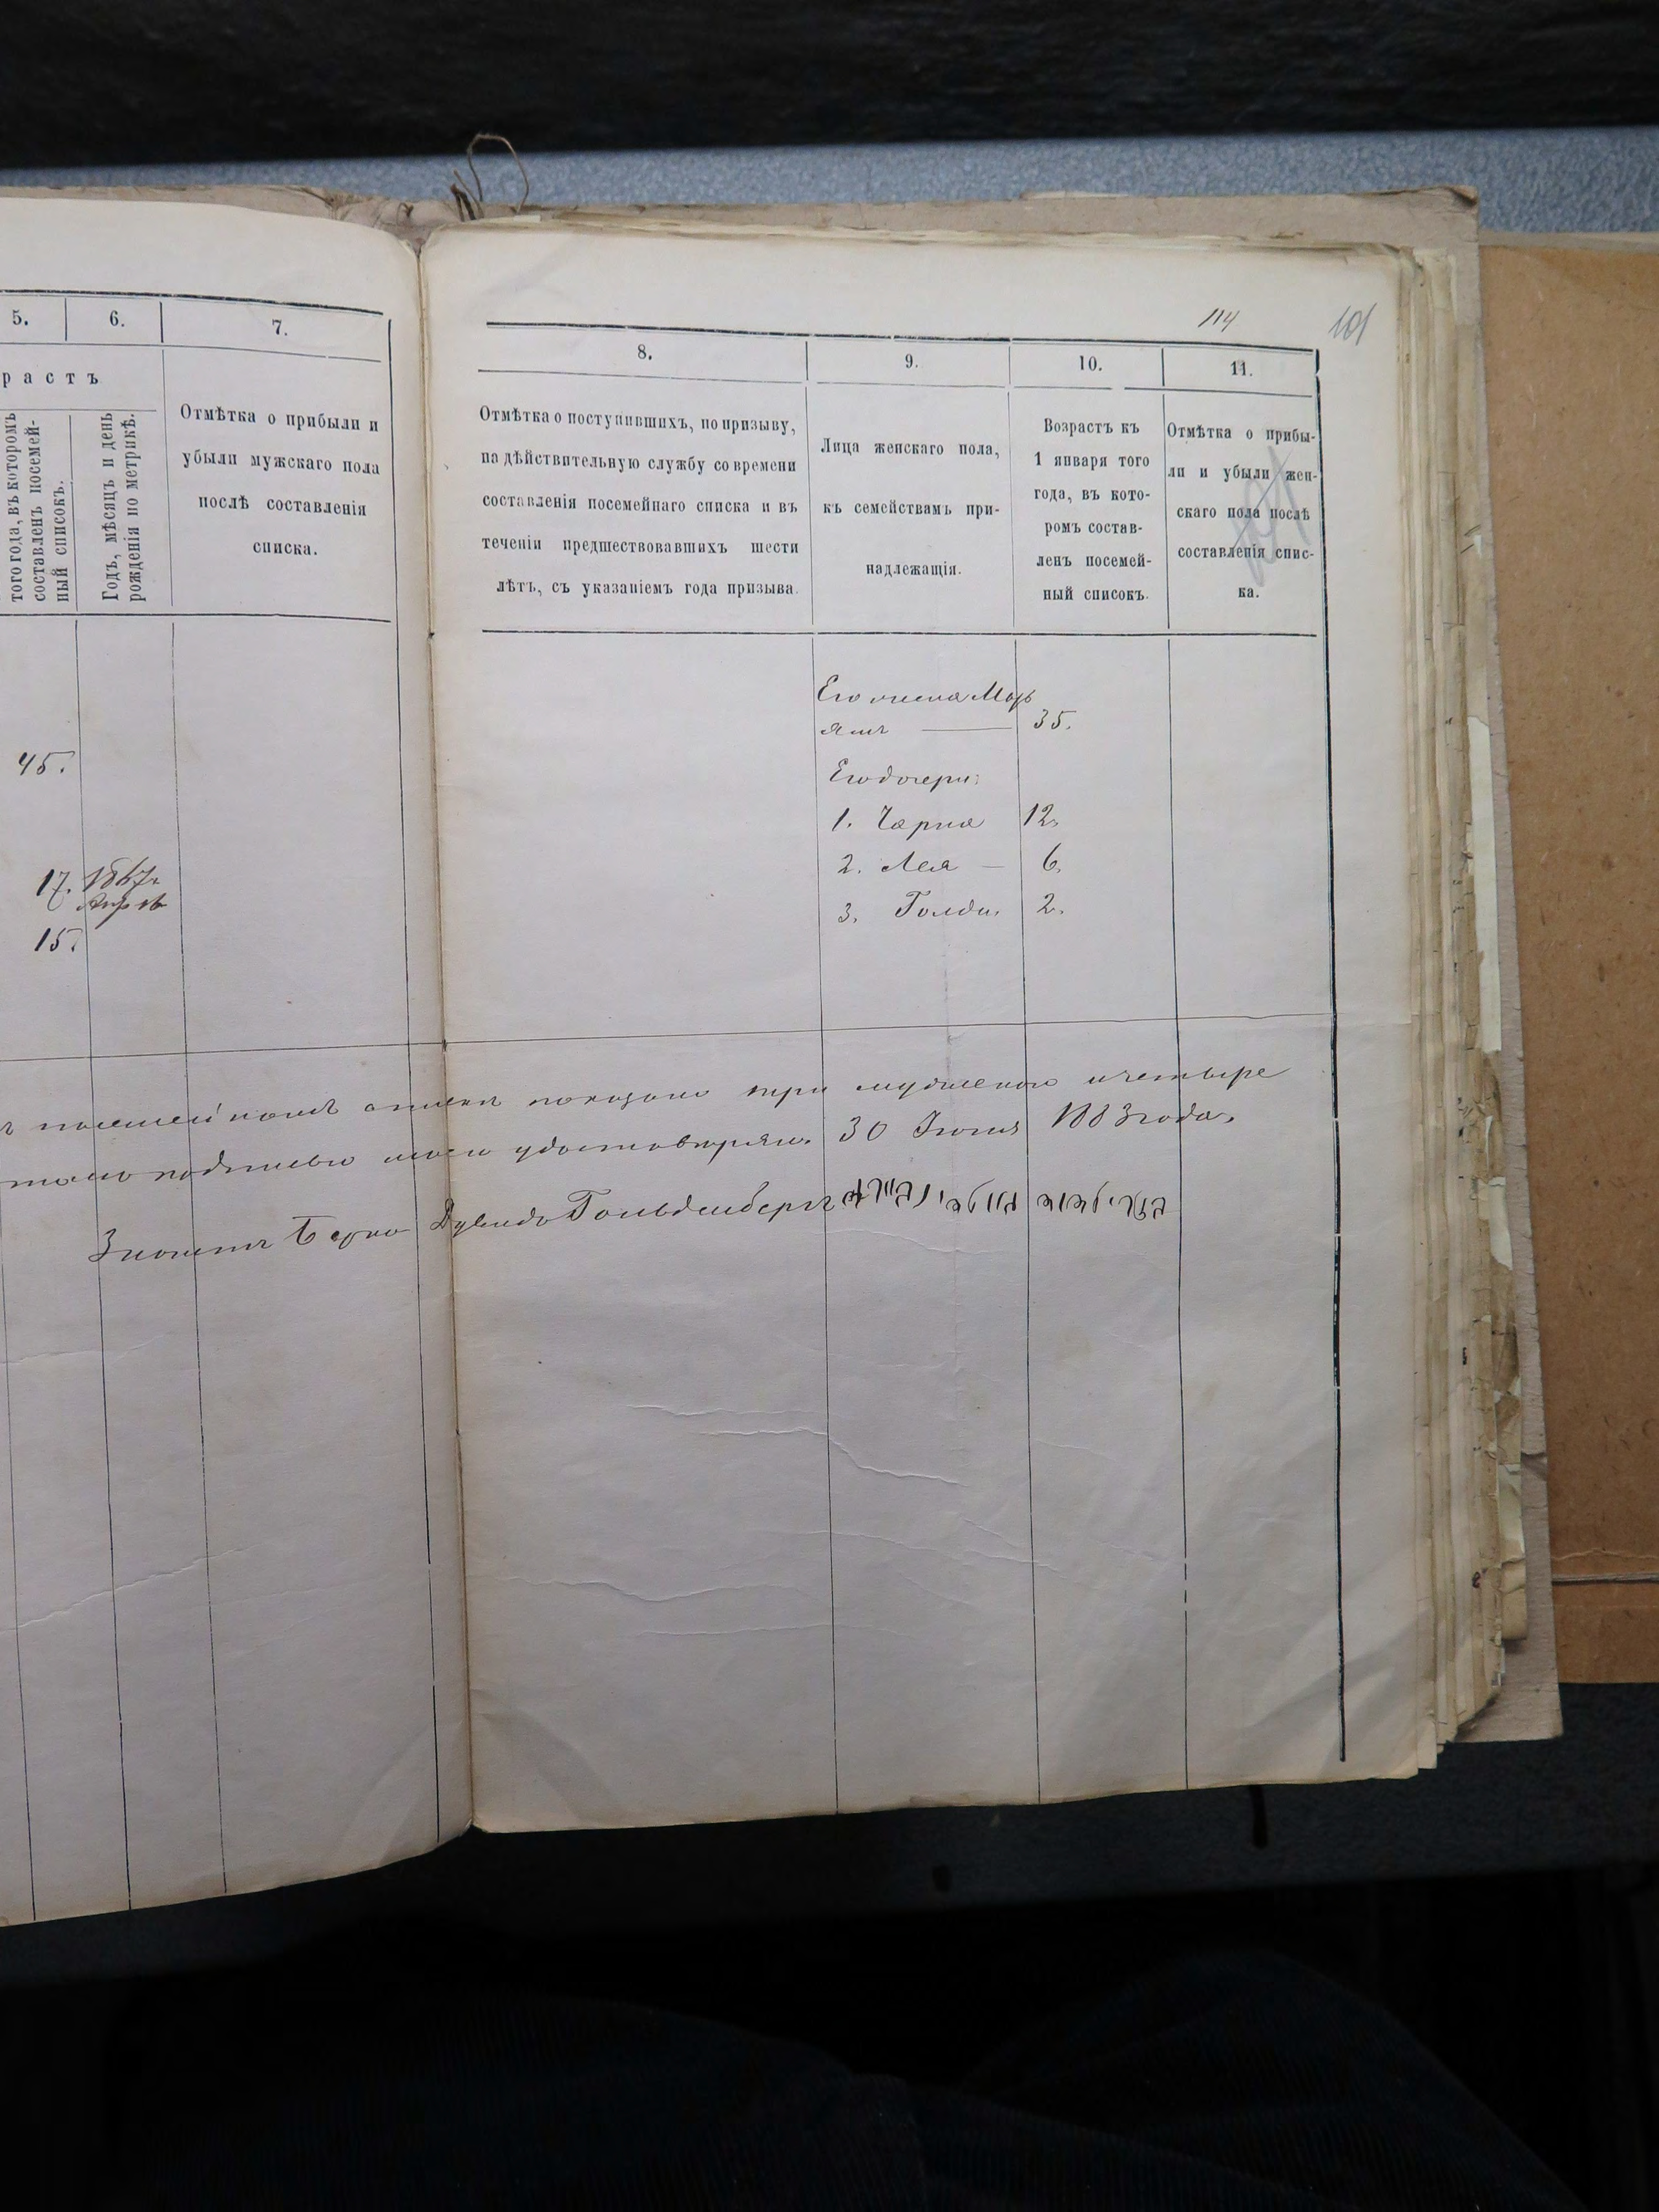 5.
6.
7.
растъ
того года, въ которомъ
составленъ посемей-
ный списокъ.
Годъ, мѣсяцъ и день
рожденія по метрикѣ.
Отмѣтка о прибыли и
убыли мужскаго пола
послѣ составленія
списка.
45.
17. 1867 г
Апр 16
15.
114
101
8.
9.
10.
11.
Отмѣтка о поступившихъ, по призыву,
на дѣйствительную службу со времени
составленія посемейнаго списка и въ
теченіи предшествовавшихъ шести
лѣтъ, съ указаніемъ года призыва.
Лица женскаго пола,
къ семействамъ при-
надлежащія.
Возрастъ къ
1 января того
года, въ кото-
ромъ состав-
ленъ посемей-
ный списокъ.
Отмѣтка о прибы-
ли и убыли жен-
скаго пола послѣ
составленія спис-
ка.
Его жена Марь
35.
Его дочери:
1. Чарна 12.
2. Лея — 6.
3. Голда. 2.
показано три мужскаго и четыре
подписью удостовѣряю. 30 Іюня 1883 года.
Берко Дувидъ Гольденбергъ